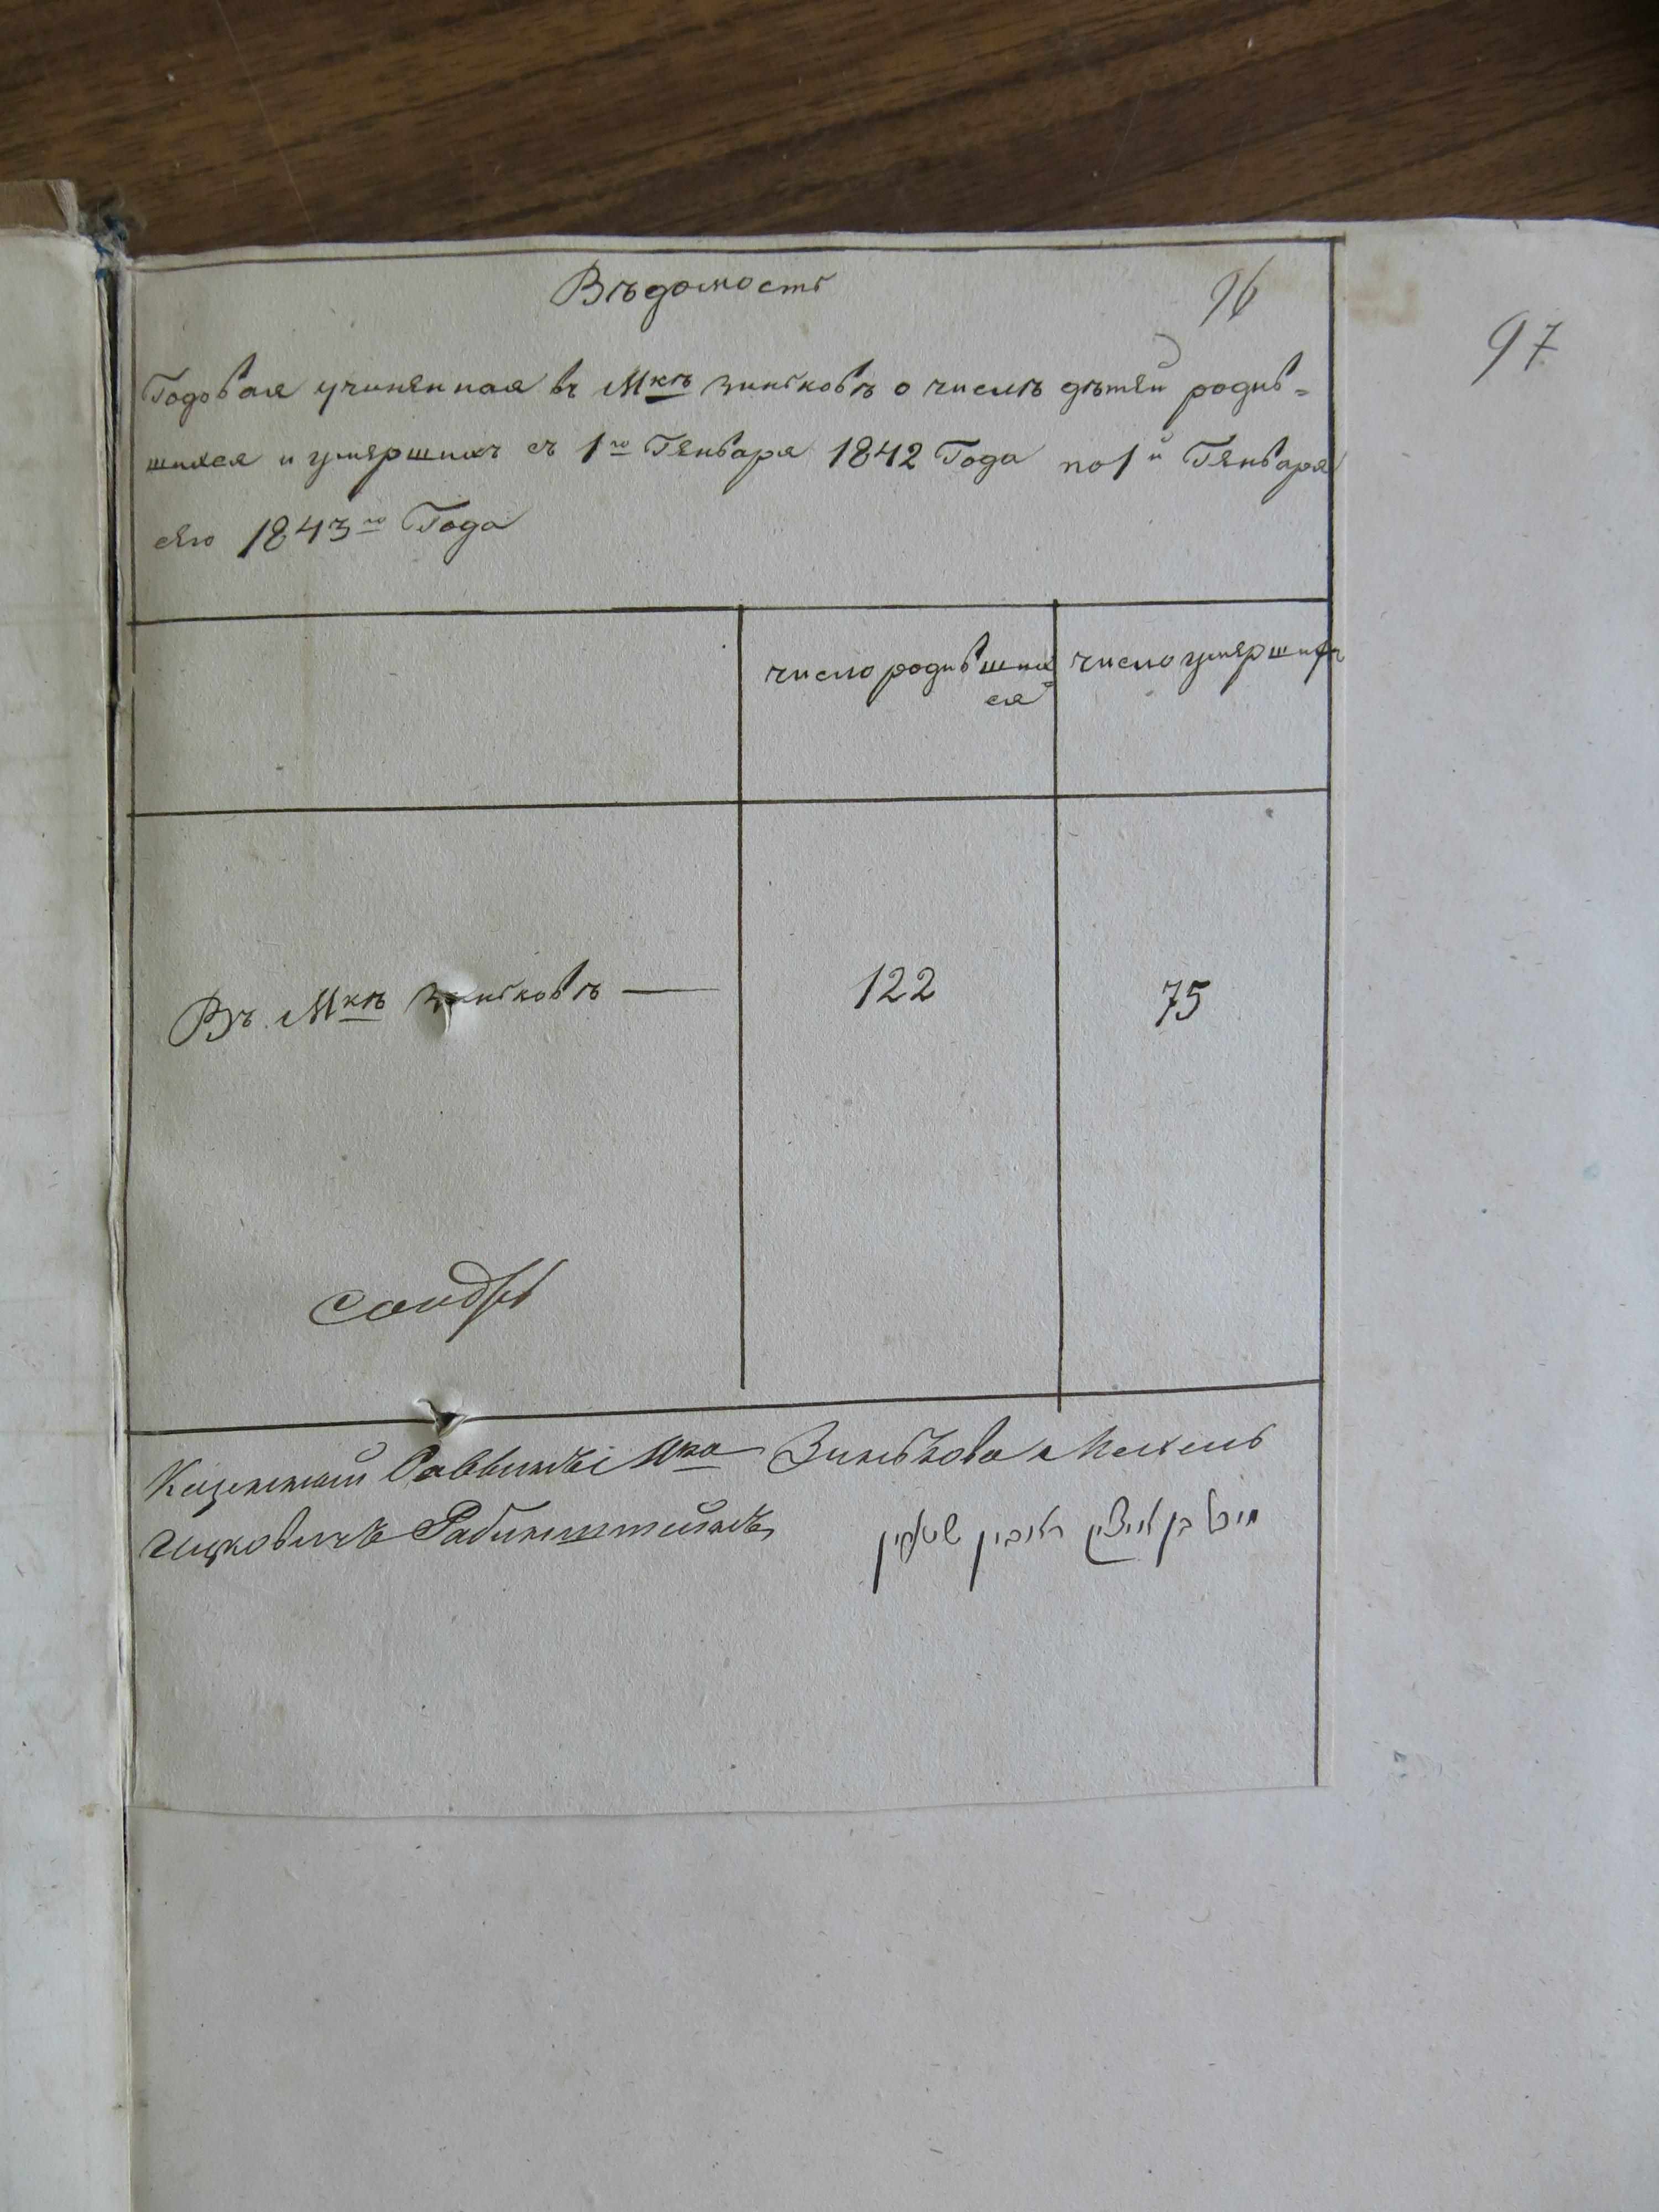 Вѣдомость
96
97
Годовая учиненная въ Мкѣ Зиньковѣ о числѣ дѣтей родив=
шихся и умершихъ съ 1го Генваря 1842 Года по 1й Генваря
сего 1843го Года
число родивших
ся
число умершихъ
Въ Мкѣ Зиньковѣ — 122 75
Казенный Раввинъ Мка Зинькова Мехель
Ицковичъ Рабинштейнъ
מיכל בן אייציק ראבין שטיין